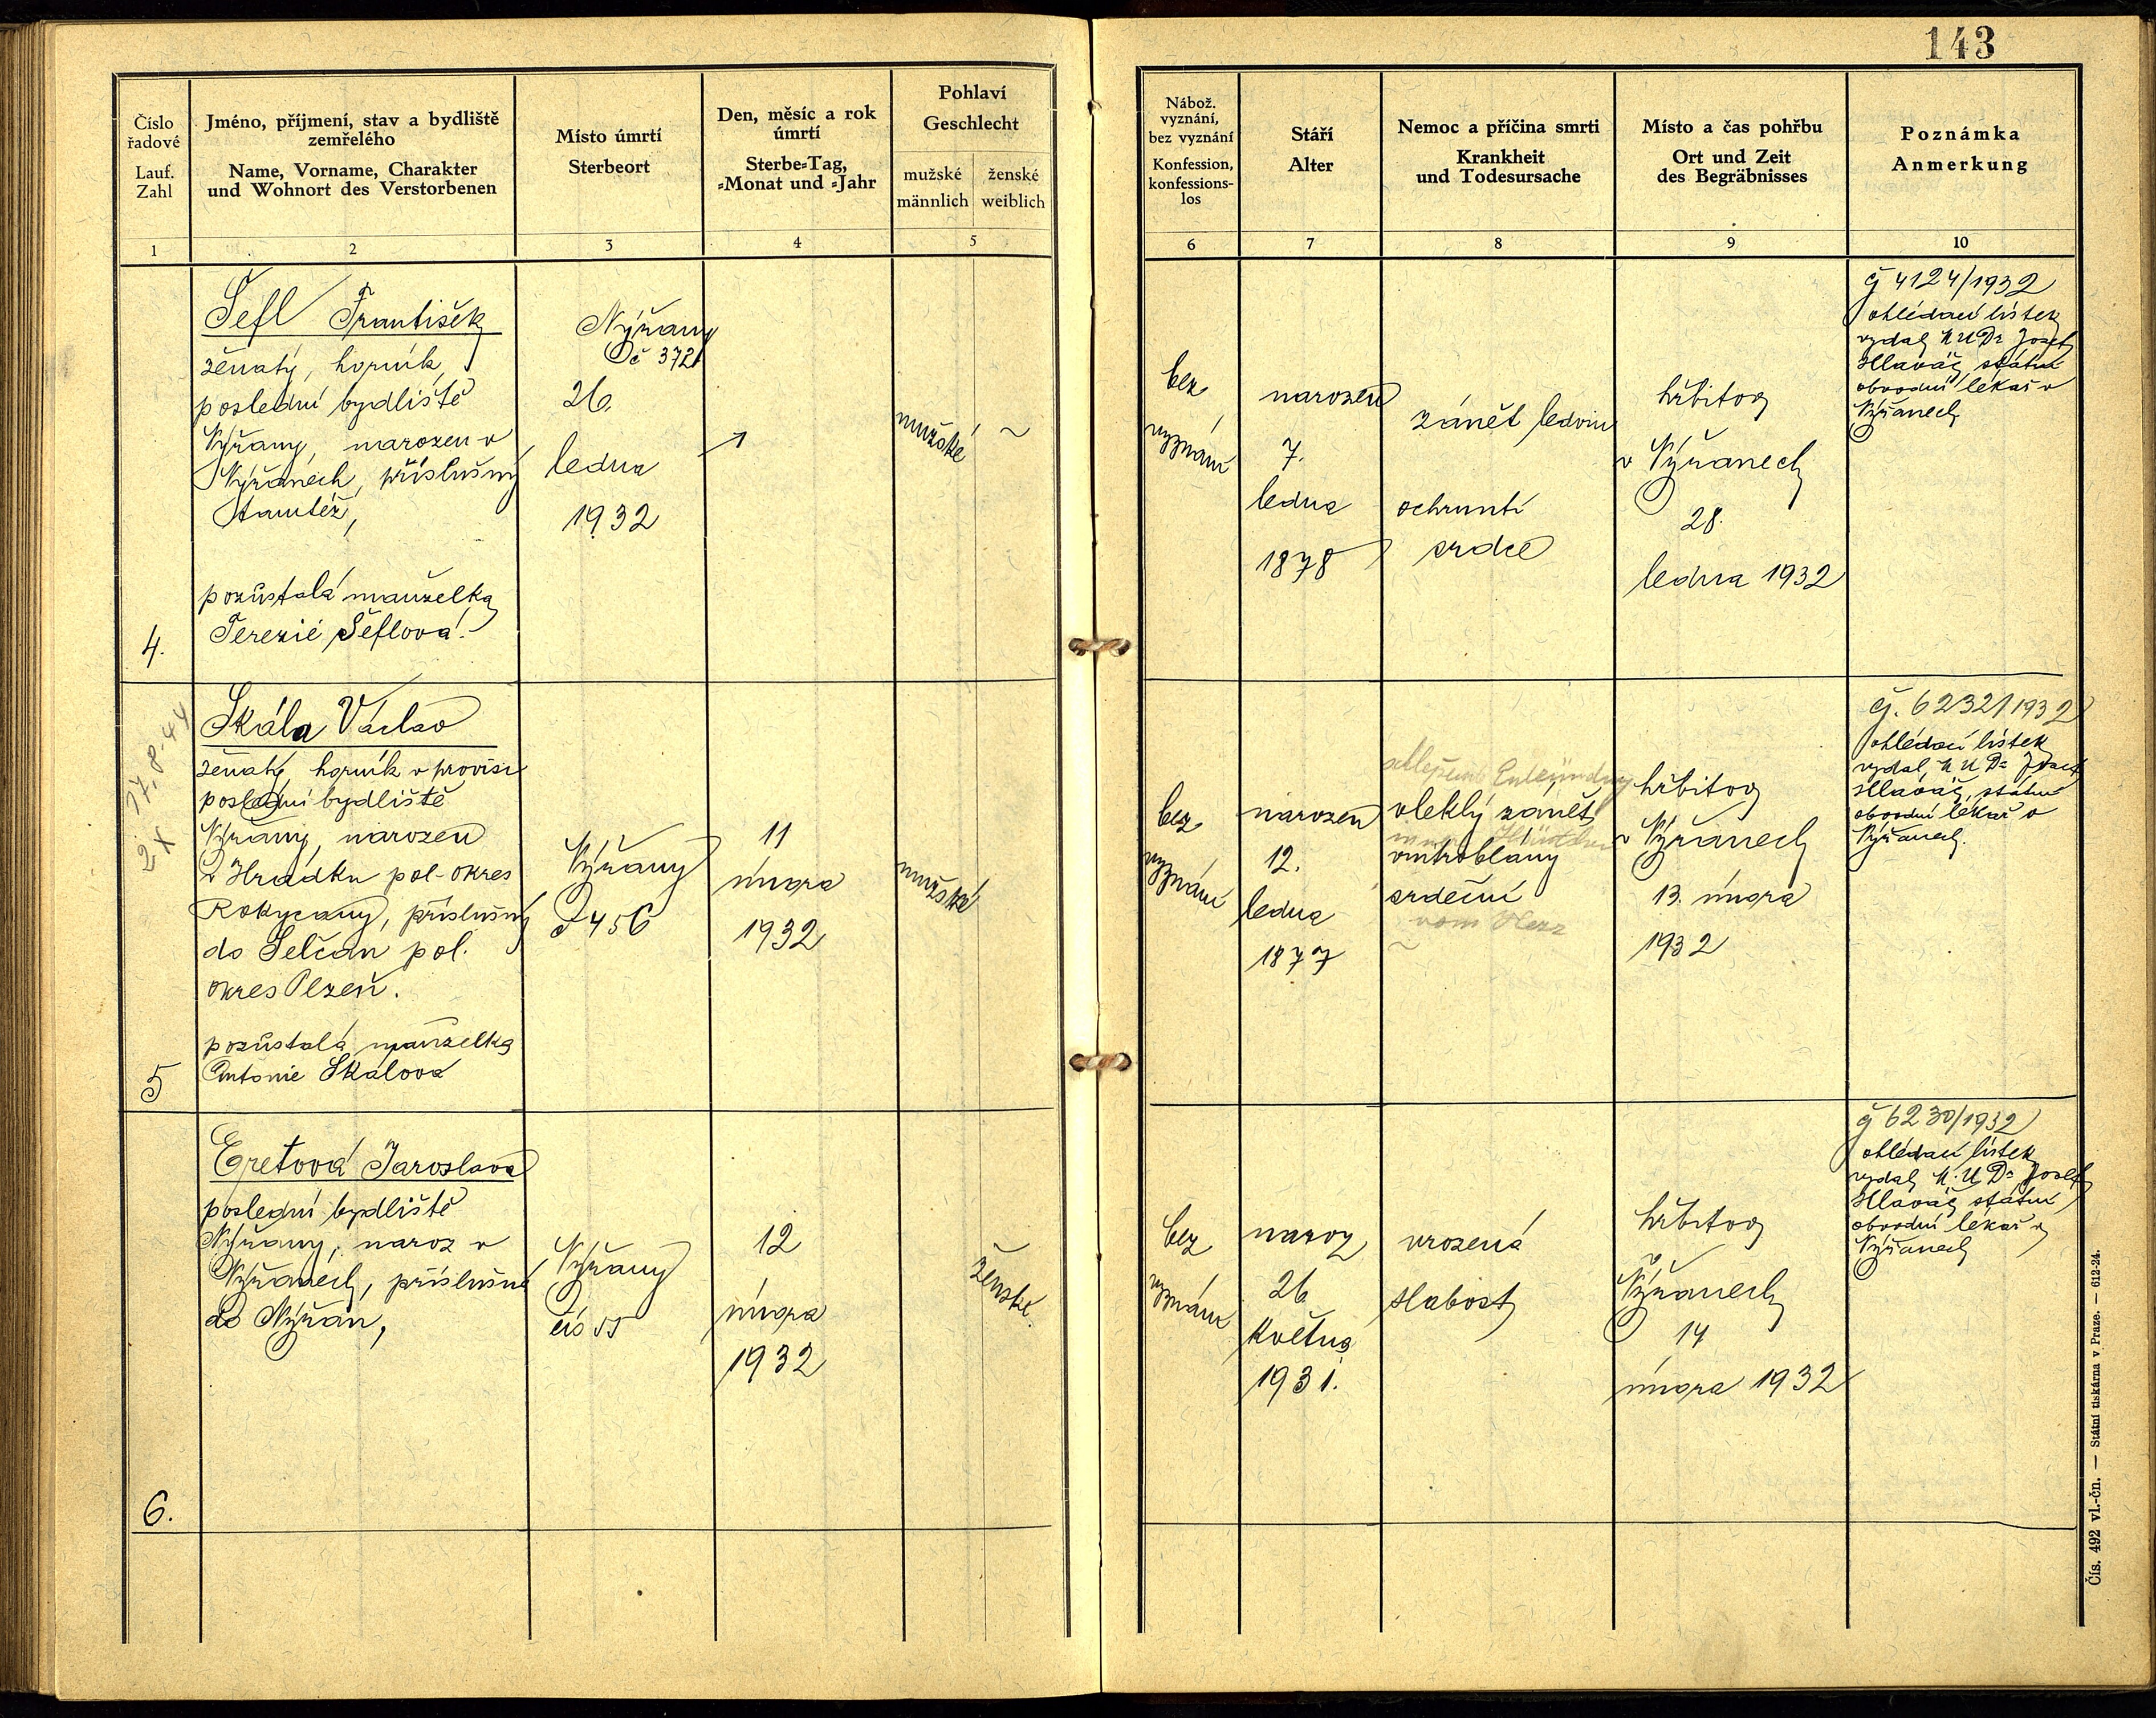 143
Číslo
řadové
Lauf.
Zahl
Jméno, příjmení, stav a bydliště
zemřelého
Name, Vorname, Charakter
und Wohnort des Verstorbenen
Místo úmrtí
Sterbeort
Den, měsíc a rok
úmrtí
Sterbe=Tag,
=Monat und =Jahr
Pohlaví
Geschlecht
mužské
männlich
ženské
weiblich
Nábož.
vyznání,
bez vyznání
Konfession,
konfessions-
los
Stáří
Alter
Nemoc a příčina smrti
Krankheit
und Todesursache
Místo a čas pohřbu
Ort und Zeit
des Begräbnisses
Poznámka
Anmerkung
1
2
3
4
5
6
7
8
9
10
4.
Šefl František
ženatý, horník,
poslední bydliště
Nýřany, narozen v
Nýřanech, příslušný
tamtéž,
pozůstalá manželka
Terezie Šeflová.
Nýřany
č 372
26.
ledna
1932
mužské
~
bez
vyznání
narozen
7.
ledna
1878
zánět ledvin
ochrnutí
srdce
hřbitov
v Nýřanech
28.
ledna 1932
čj 4124/1932
ohledací lístek
vydal MUDr Josef
Hlaváč, státní
obvodní lékař v
Nýřanech
2 17.8.44
X
5
Skála Václav
ženatý, horník v provisi
poslední bydliště
Nýřany, narozen
v Hrádku pol. okres
Rokycany, příslušný
do Selčan pol.
okres Plzeň.
pozůstalá manželka
Antonie Skálová
Nýřany
č 456
11
února
1932
mužské
bez
vyznání
narozen
12.
ledna
1877
Entzündung
vleklý zánět
vnitroblány
srdeční
vom Herz
~
hřbitov
v Nýřanech
13. února
1932
čj. 6232/1932
ohledací lístek
vydal MUDr Josef
Hlaváč, státní
obvodní lékař v
Nýřanech.
6.
Eretová Jaroslava
poslední bydliště
Nýřany, naroz v
Nýřanech, příslušná
do Nýřan,
Nýřany
čís 55
12
února
1932
ženské.
bez
vyznání
naroz
26
května
1931.
vrozená
slabost
hřbitov
v
Nýřanech
14
února 1932
čj 6230/1932
ohledací lístek
vydal M.U.Dr Josef
Hlaváč státní
obvodní lékař v
Nýřanech
Čís. 492 vl.-čn. — Státní tiskárna v Praze. — 612-24.